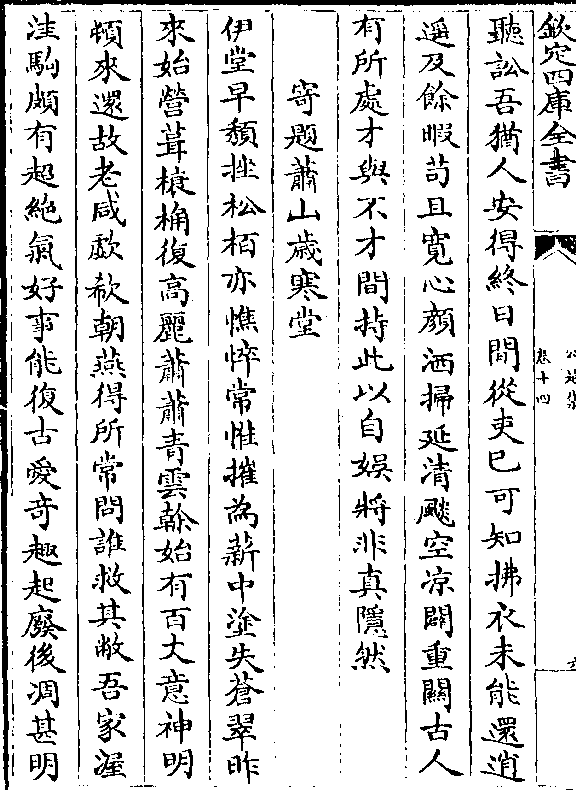 欽定四庫全書
公是集
卷十四
聽訟吾猶人安得終日間從吏已可知拂衣未能還逍
遥及餘暇苟且寛心顔洒掃延清飈空凉闢重關古人
有所處才與不才間持此以自娱將非真隠然
寄題蕭山歳寒堂
伊堂早頽挫松栢亦憔悴常惟摧為薪中塗失蒼翠昨
來始營葺榱桷復高麗蕭蕭青雲榦始有百丈意神明
頓來還故老咸歔欷朝燕得所常問誰救其敝吾家渥
洼駒頗有超絶氣好事能復古愛奇趣起廢後凋甚明